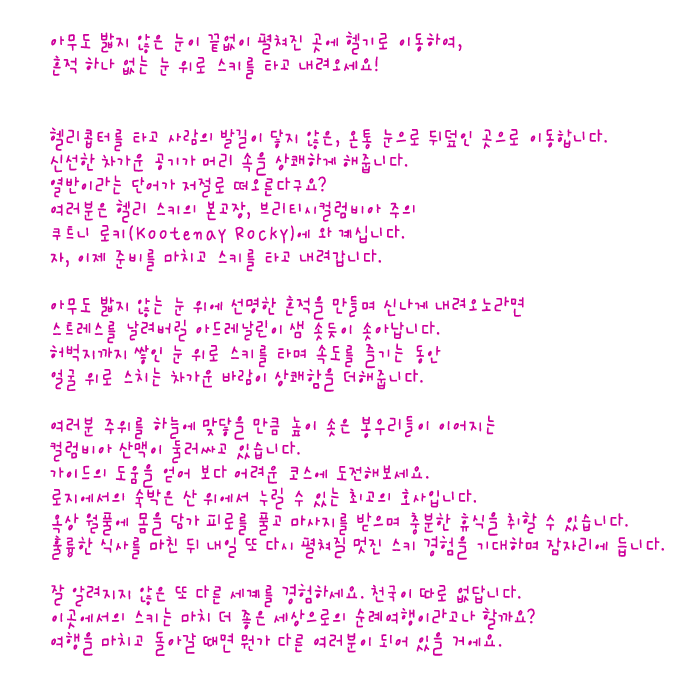 아무도 밟지 않은 눈이 끝없이 펼쳐진 곳에 헬기로 이동하여,
흔적 하나 없는 눈 위로 스키를 타고 내려오세요!
헬리콥터를 타고 사람의 발길이 닿지 않은, 온통 눈으로 뒤덮인 곳으로 이동합니다.
신선한 차가운 공기가 머리 속을 상쾌하게 해줍니다.
열반이라는 단어가 저절로 떠오른다구요?
여러분은 헬리 스키의 본고장, 브리티시컬럼비아 주의
쿠트니 로키(Kootenay Rocky)에 와 계십니다.
자, 이제 준비를 마치고 스키를 타고 내려갑니다.
아무도 밟지 않는 눈 위에 선명한 흔적을 만들며 신나게 내려오노라면
스트레스를 날려버릴 아드레날린이 샘 솟듯이 솟아납니다.
허벅지까지 쌓인 눈 위로 스키를 타며 속도를 즐기는 동안
얼굴 위로 스치는 차가운 바람이 상쾌함을 더해줍니다.
여러분 주위를 하늘에 맞닿을 만큼 높이 솟은 봉우리들이 이어지는
컬럼비아 산맥이 둘러싸고 있습니다.
가이드의 도움을 얻어 보다 어려운 코스에 도전해보세요.
로지에서의 숙박은 산 위에서 누릴 수 있는 최고의 호사입니다.
옥상 월풀에 몸을 담가 피로를 풀고 마사지를 받으며 충분한 휴식을 취할 수 있습니다.
훌륭한 식사를 마친 뒤 내일 또 다시 펼쳐질 멋진 스키 경험을 기대하며 잠자리에 듭니다.
잘 알려지지 않은 또 다른 세계를 경험하세요. 천국이 따로 없답니다.
이곳에서의 스키는 마치 더 좋은 세상으로의 순례여행이라고나 할까요?
여행을 마치고 돌아갈 때면 뭔가 다른 여러분이 되어 있을 거에요.